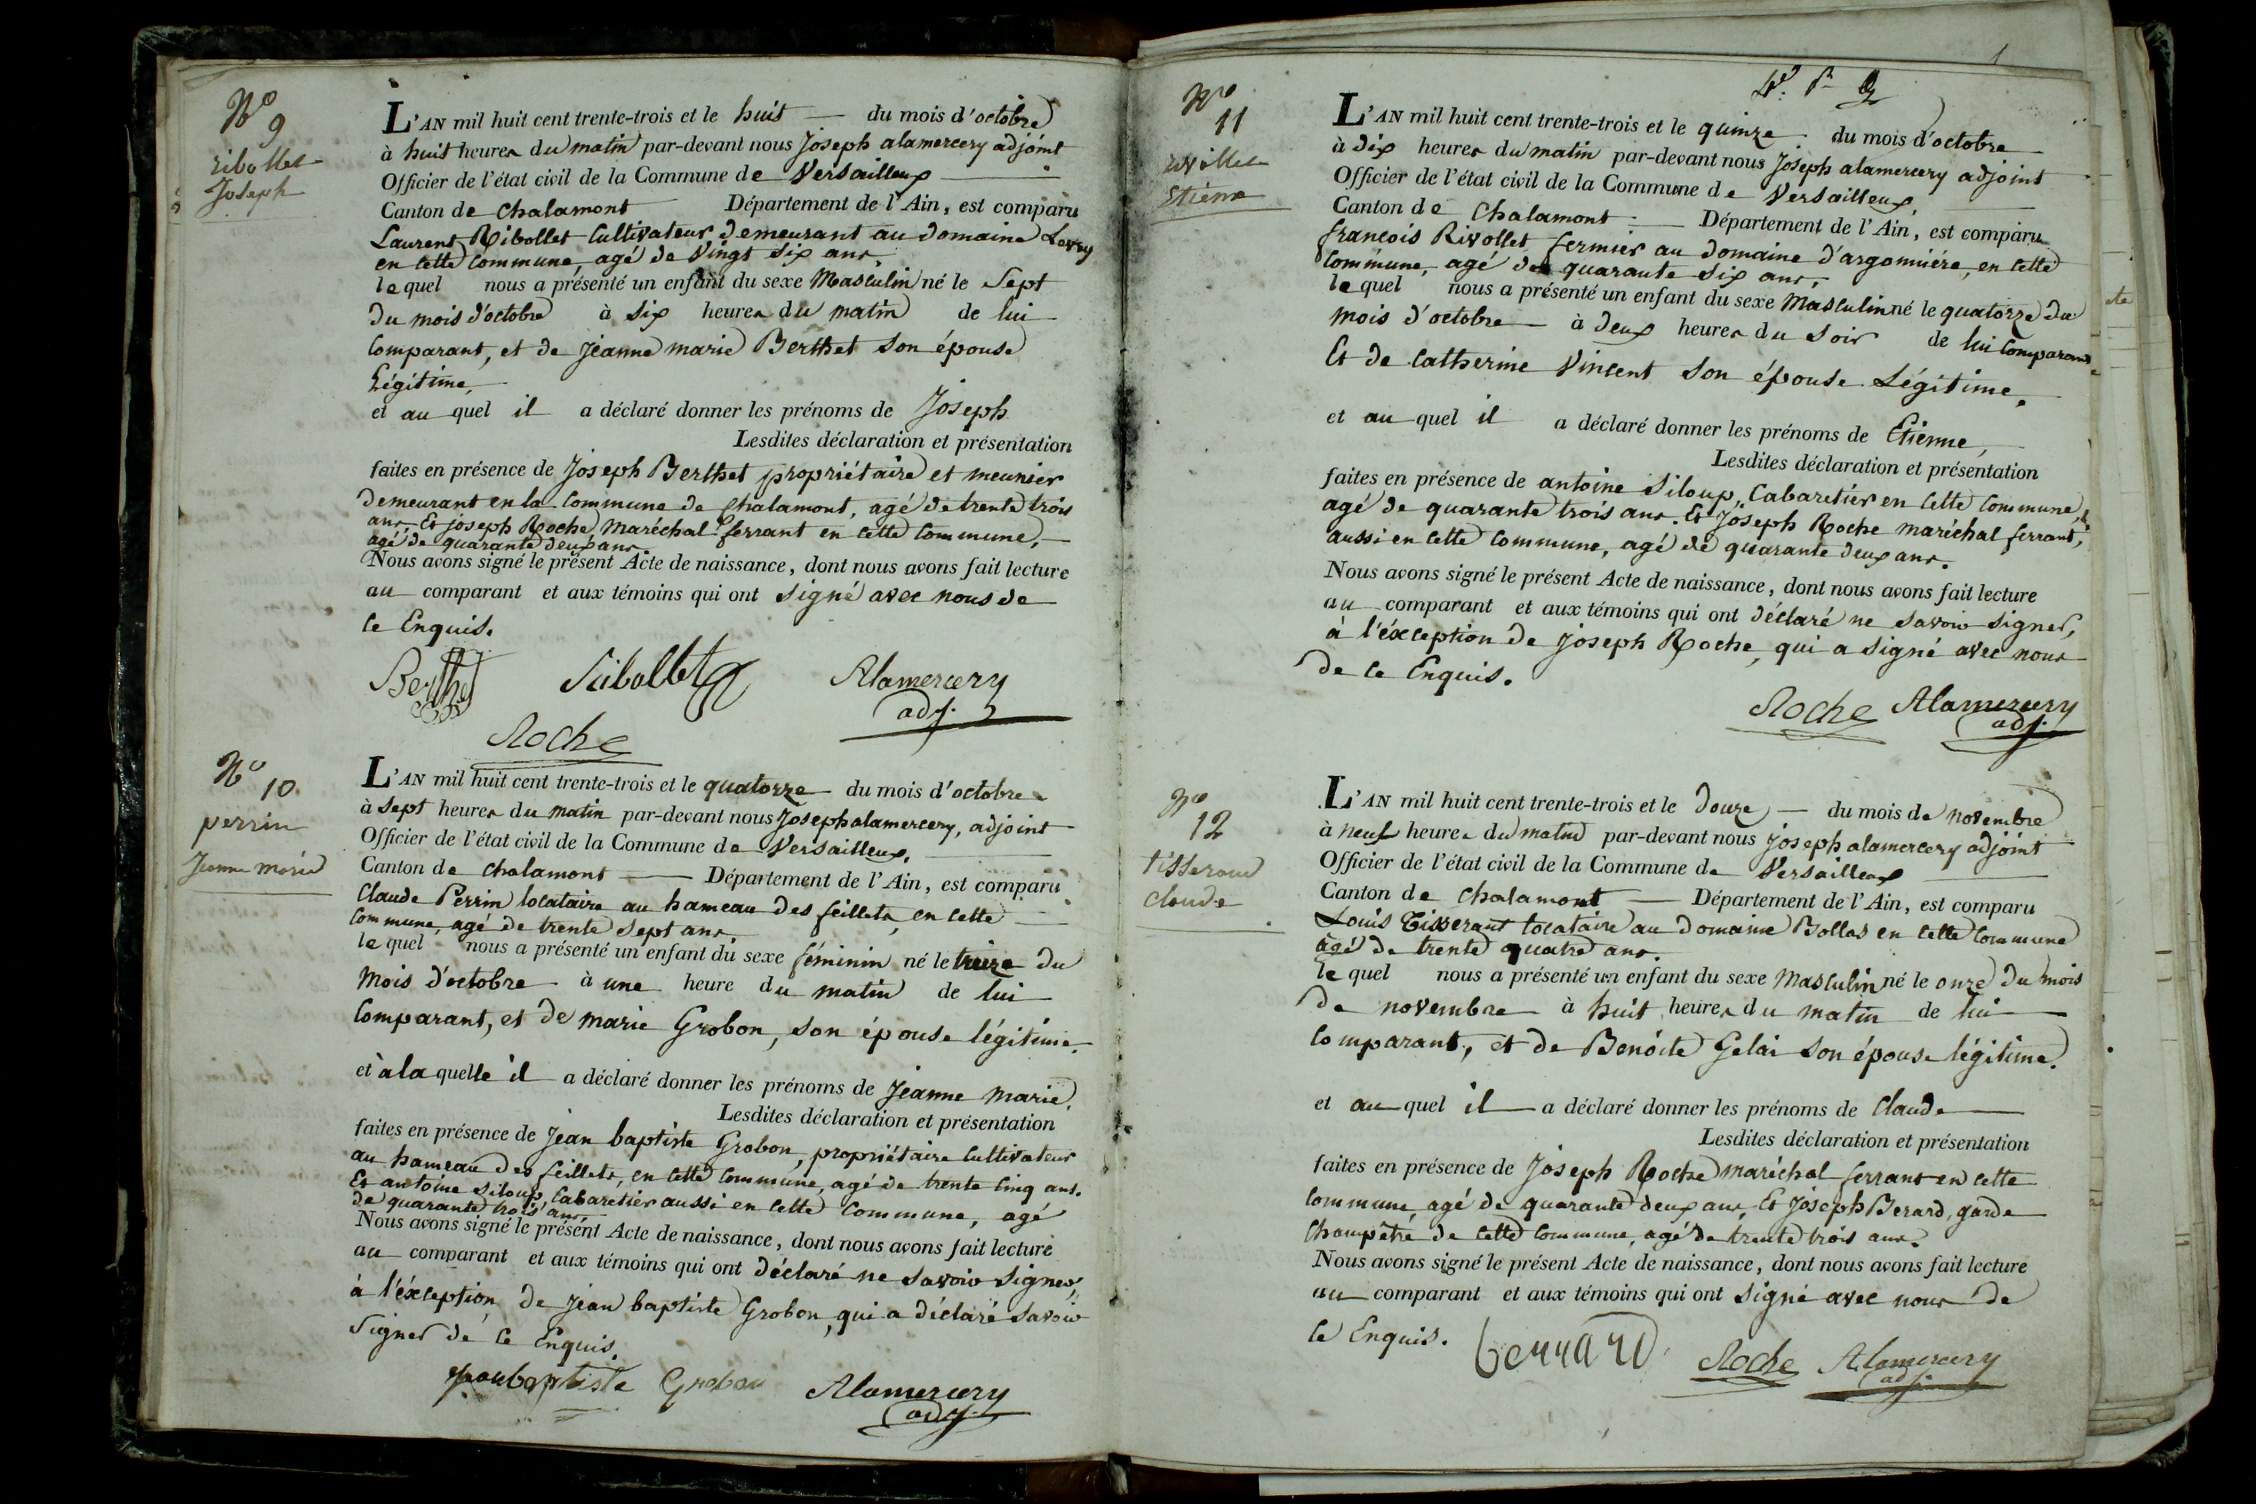 N.o
9
ribollet
Joseph
L'AN mil huit cent trente-trois et le huit — du mois d'octobre
à huit heures du matin par-devant nous Joseph alamercery adjoint
Officier de l'état civil de la Commune de Versailleux
Canton de Chalamont Département de l'Ain, est comparu
Laurent Ribollet Cultivateur demeurant au domaine
en cette commune, agé de Vingt Six ans,
le quel nous a présenté un enfant du sexe Masculin né le Sept
du mois d'octobre à six heures du matin de lui
Comparant, et de Jéanne marie Berthet son épouse
Légitime,
et au quel il a déclaré donner les prénoms de Joseph
Lesdites déclaration et présentation
faites en présence de Joseph Berthet propriétaire et meunier
demeurant en la Commune de Chalamont, agé de trente trois
ans Et joseph Roche Maréchal ferrant en cette Commune,
agé de quarante deux ans
Nous avons signé le présent Acte de naissance, dont nous avons fait lecture
au comparant et aux témoins qui ont signé avec nous de
ce Enquis.
Berthet Ribollet Alamercery
adj.
Roche
N.o
10
perrin
Jeanne marie
L'AN mil huit cent trente-trois et le quatorze du mois d'octobre
à sept heures du matin par-devant nous Joseph alamercery, adjoint
Officier de l'état civil de la Commune de Versailleux,
Canton de chalamont — Département de l'Ain, est comparu
Claude Perrin locataire au hameau des feillets, en cette
Commune, agé de trente sept ans
le quel nous a présenté un enfant du sexe féminin né le treize du
mois d'octobre à une heure du matin de lui
Comparant, et de marie Grobon, son épouse légitime.
et à la quelle il a déclaré donner les prénoms de Jéanne Marie,
Lesdites déclaration et présentation
faites en présence de Jéan baptiste Grobon, propriétaire Cultivateur
au hameau des feillets, en cette Commune, agé de trente Cinq ans.
Et antoine Siloup, Cabaretier aussi en cette Commune, agé
de quarante trois ans,
Nous avons signé le présent Acte de naissance, dont nous avons fait lecture
au comparant et aux témoins qui ont déclaré ne savoir signer,
à l'éxception de Jéan baptiste Grobon, qui a déclaré savoir
signer de ce Enquis.
jean baptiste Grobon Alamercery
adj.
N.o
11
rivollet
Etienne
L'AN mil huit cent trente-trois et le quinze du mois d'octobre
à dix heures du matin par-devant nous Joseph alamercery adjoint
Officier de l'état civil de la Commune de Versailleux,
Canton de Chalamont — Département de l'Ain, est comparu
françois Rivollet fermier au domaine d'argonniére, en cette
Commune, agé de quarante six ans,
le quel nous a présenté un enfant du sexe Masculin né le quatorze du
mois d'octobre — à deux heures du soir de lui Comparant
Et de Catherine Vincent son épouse Légitime,
et au quel il a déclaré donner les prénoms de Etienne,
Lesdites déclaration et présentation
faites en présence de antoine Siloup, Cabaretier en cette Commune,
agé de quarante trois ans. Et Joseph Roche maréchal ferrant,
aussi en cette Commune, agé de quarante deux ans.
Nous avons signé le présent Acte de naissance, dont nous avons fait lecture
au comparant et aux témoins qui ont déclaré ne savoir signer,
à l'éxception de joseph Roche, qui a signé avec nous
de ce Enquis.
Roche Alamercery
adj.
N.o
12
tisserand
claude
L'AN mil huit cent trente-trois et le douze — du mois de novembre
à neuf heures du matin par-devant nous joseph alamercery adjoint
Officier de l'état civil de la Commune de Versailleux
Canton de Chalamont — Département de l'Ain, est comparu
Louis Tisserant locataire au domaine Bollas en cette Commune
agé de trente quatre ans.
le quel nous a présenté un enfant du sexe Masculin né le onze du mois
de novembre à huit heures du matin de lui
Comparant, et de Benoite Gelai son épouse légitime.
et au quel il a déclaré donner les prénoms de Claude
Lesdites déclaration et présentation
faites en présence de Joseph Roche maréchal ferrant en cette
Commune, agé de quarante deux ans, Et Joseph Berard, garde
Champêtre de cette Commune, agé de trente trois ans.
Nous avons signé le présent Acte de naissance, dont nous avons fait lecture
au comparant et aux témoins qui ont signé avec nous de
ce Enquis.
Roche Alamercery
adj.